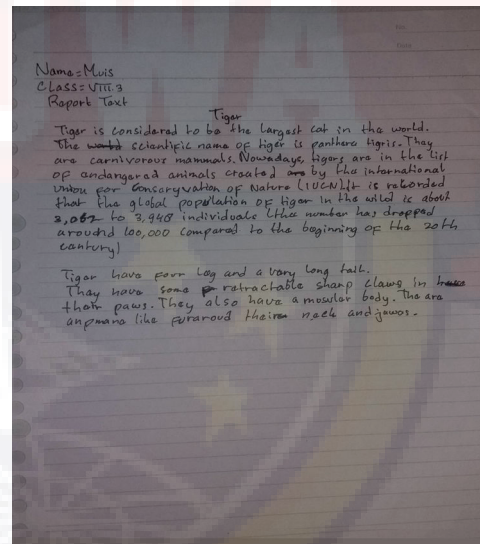 Name = Muis
Class = VIII.3
Report Text
Tiger
Tiger is considered to be the largest cat in the world.
The scientific name of tiger is panthera tigris. They
are carnivorous mammals. Nowadays, tigers are in the list
of endangered animals created by the international
union for Conseryvation of Nature (IUCN) It is recorded
that the global population of tiger in the wild is about
3,062 to 3,948 individuals (the number has dropped
around 100,000 compared to the beginning of the 20th
century)
Tiger have four leg and a very long tail.
They have some retractable sharp claws in
their paws. They also have a muscular body. The are
like their neck and jawos.